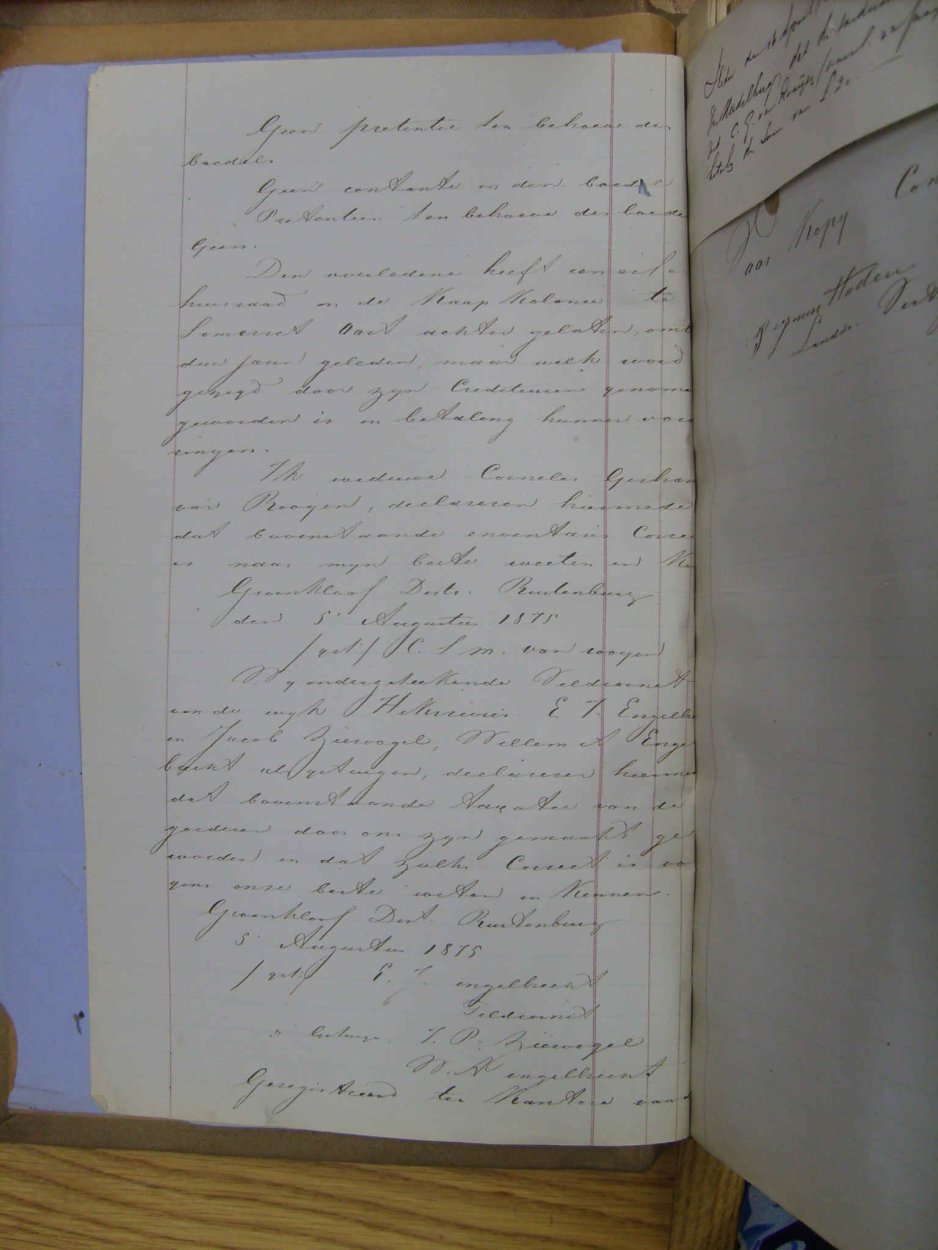 Geen pretentie ten behoeve des
boedels
Geen contante in den boedel
Pretentien ten behoeve des boede
Geen.
Den overledene heeft een
huisraad in de Kaap Kolonie te
Somerset Oost achter gelaten, omt
drie jaren geleden, maar welk word
gezegd door zyn Crediteuren genome
geworden is in betaling hunner vor
ringen.
Ik weduwe Cornelis Gerhar
van Rooyen, declareren hiermede
dat bovenstaande inventaris Corre
is naar myn beste weeten en Ke
Groenkloof Distr. Rustenburg
den 5 Augustus 1875
/get:/ C. S. M. van rooyen
Wy ondergeteekende Veldcornet
van de wyk Hexrivier E. J. Engelbre
en Jacob Ziervogel, Willem A Enge
brecht als getuigen, declareren hierme
dat bovenstaande taxatie van de
goederen door ons zyn gemaakt ge
worden en dat zulks Correct is vo
gens onse beste weten en Kennen.
Groenkloof Dist Rustenburg
5 Augustus 1875
/get:/ E. J. engelbrecht
Veldcornet
" Getuige. J. P. Ziervogel
W. A engelbrecht
Geregistreerd ten Kantore van
den 16 April
Middelburg
C. G. van Rooyen
de Som van
Voor Kopy
Con